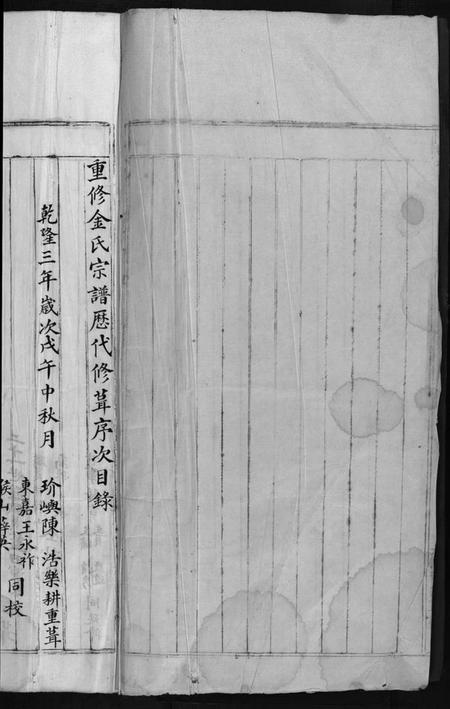 重修金氏宗譜歷代修葺序次目錄
乾隆三年歲次戊午中秋月
玠嶼陳 浩樂耕重葺
東嘉王永祚 同校